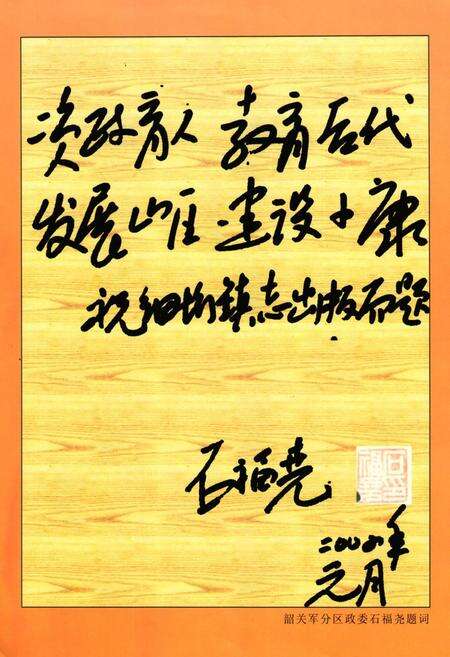 资政育人 教育后代
发展山区 建设小康
祝细坳镇志出版而题
石福尧
二00四年
元月
韶关军分区政委石福尧题词